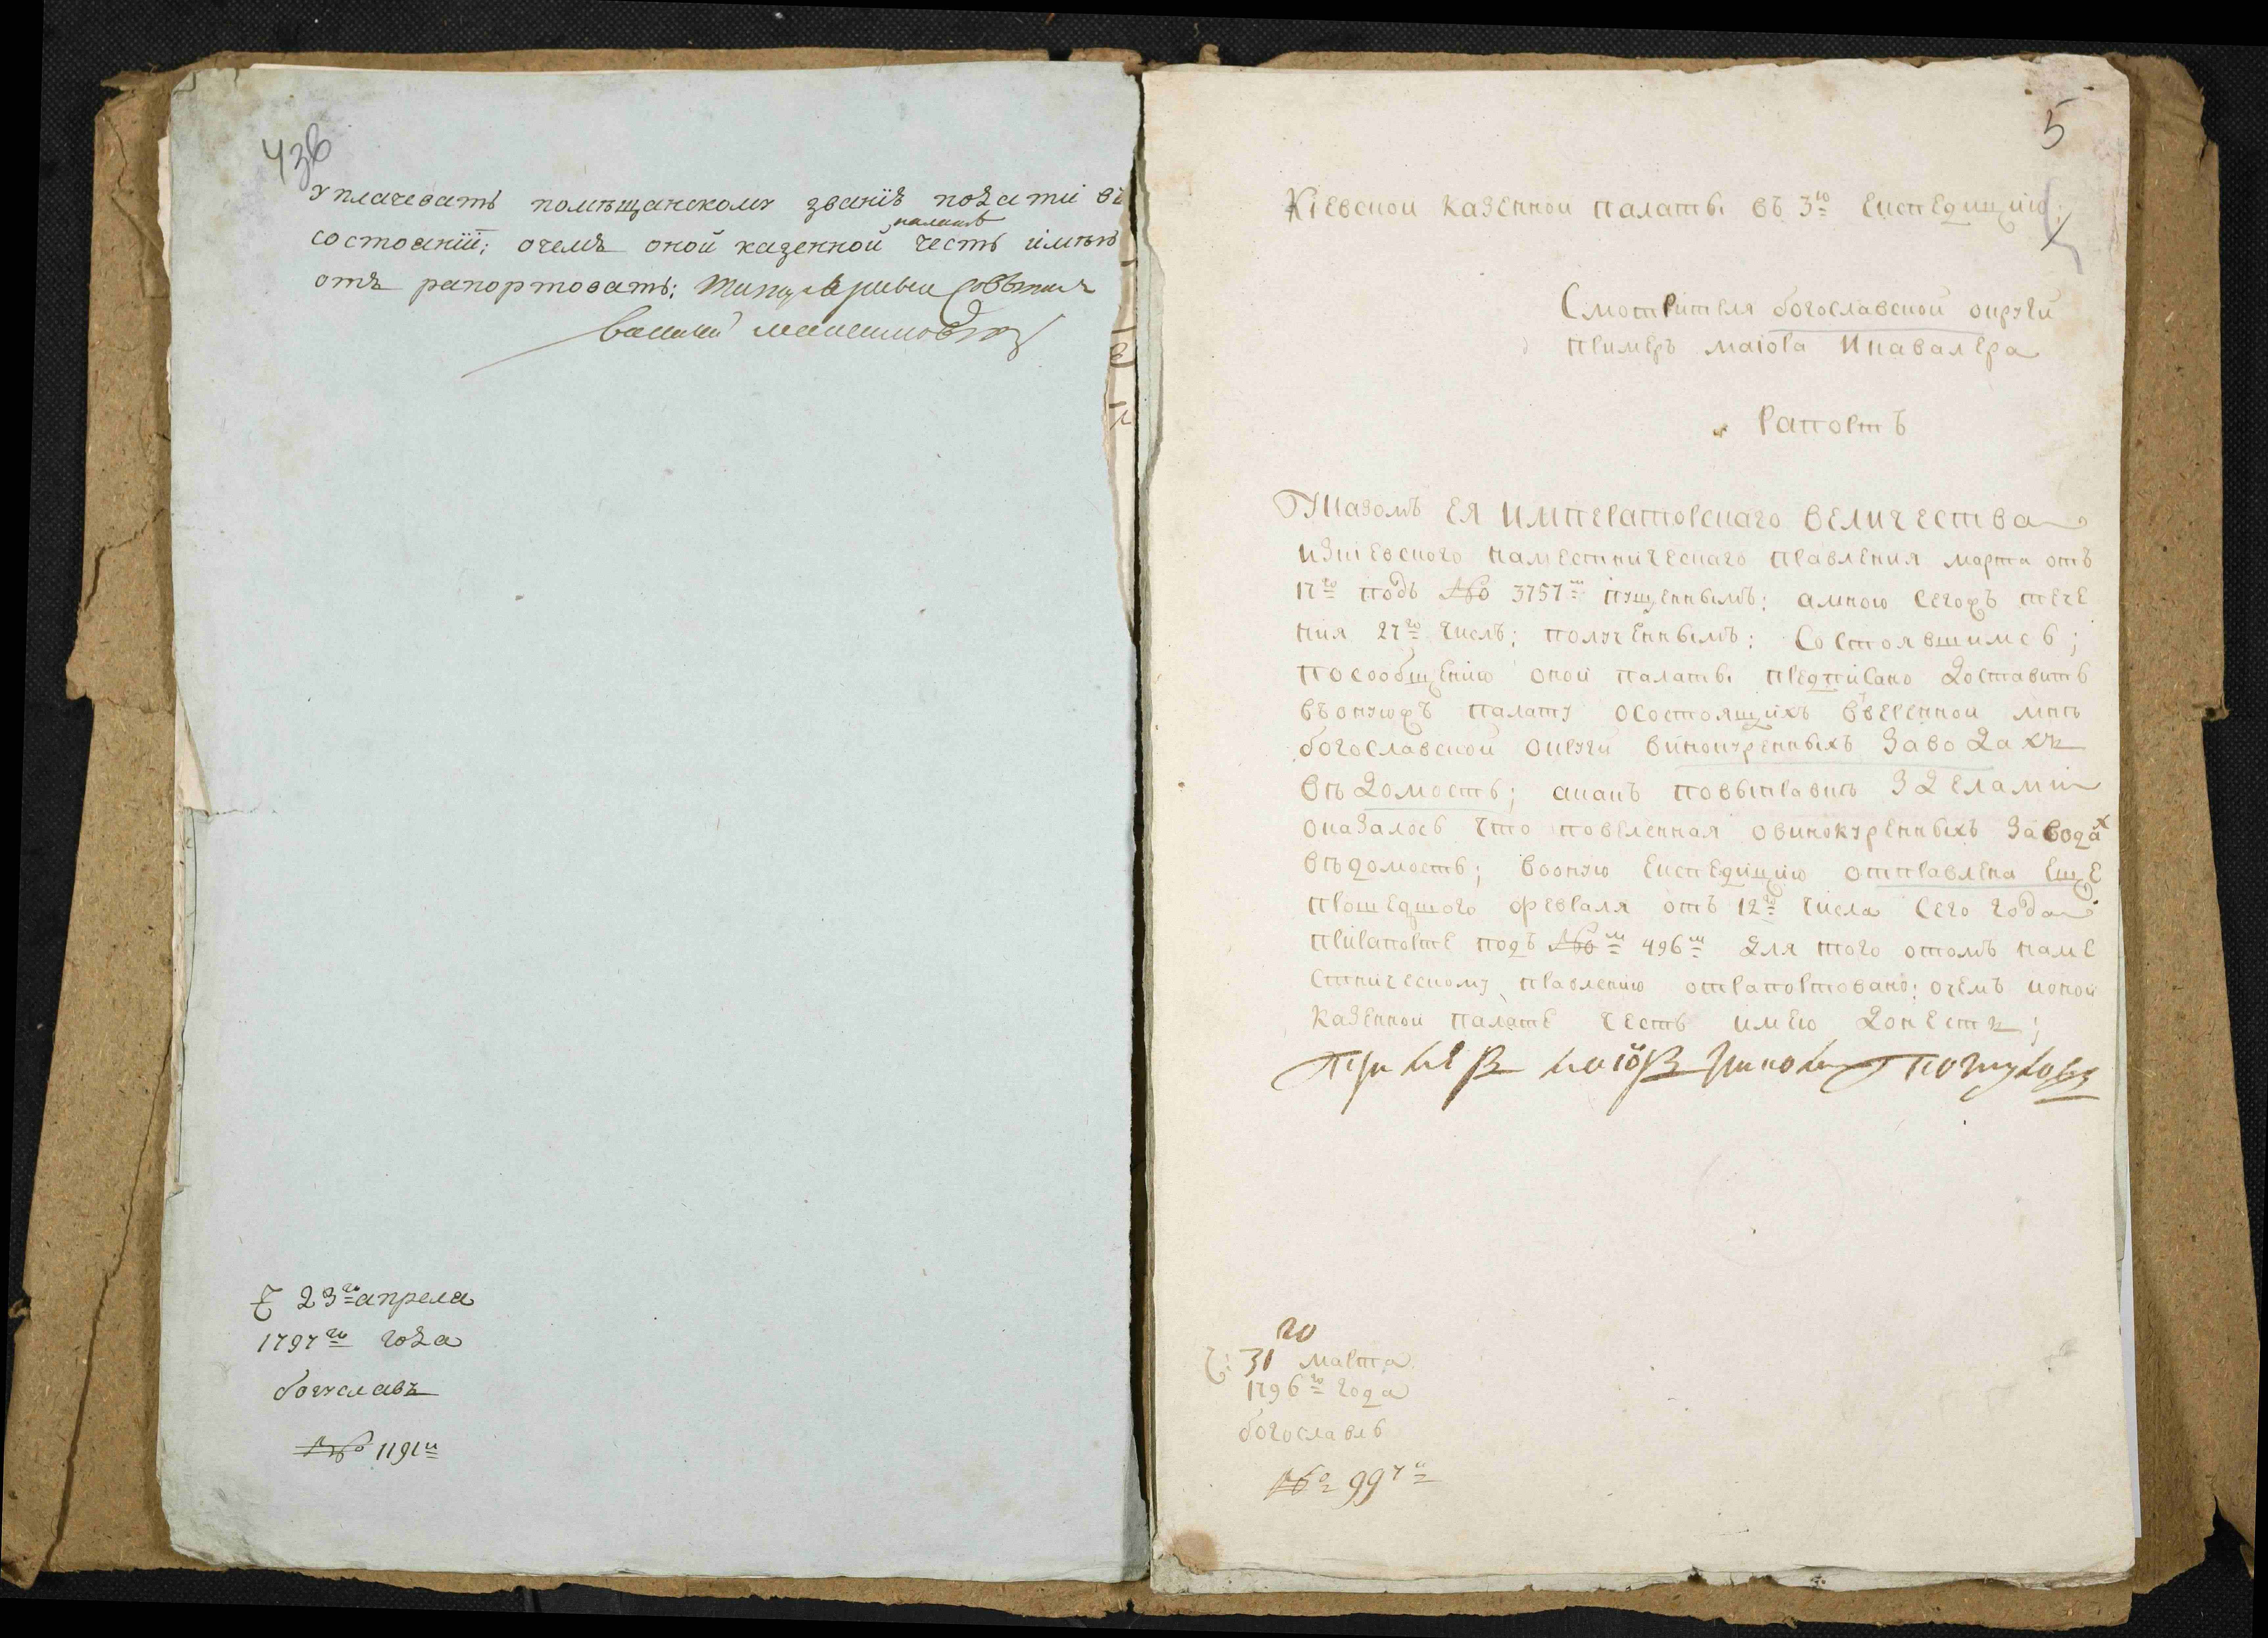 4зв
уплачевать помѣщанскому званію подати въ
состоянїи; очемъ оной казенной палатѣ честь імѣю
отъ рапортовать; титулярный совѣтникъ
василий
Ч 23го апреля
1797го года
богуславъ
№ 1191й
5
Кіевской казенной палаты въ 3ю експедицию
Смотрителя богославской округи
примеръ маіора Икавалера
Рапортъ
Указомъ ея императорскаго величества
искіевского наместническаго правления марта отъ
17го подъ № 3757м пущеннымъ; амною сегожъ тече
ния 27го числъ; полученнымъ; Состоявшимсь;
посообщению оной палаты предписано доставить
въонуюжъ палату осостоящихъ вверенной мнѣ
богославской округи винокуренныхъ заводахъ
вѣдомость; акакъ повыправкѣ зделами
оказалось что повеленная овинокуренныхъ завода х
вѣдомость; воoную експедицию отправлена еще
прошедшого февраля отъ 12го числа сего года
прирапорте подъ №м 496м для того отомъ наме
стническому правлению отрапортовано; очемъ ионой
казенной палате честь имею донесть;
примеръ маіоръ
го
Ч: 31 марта
1796го года
богославль
№ 997й